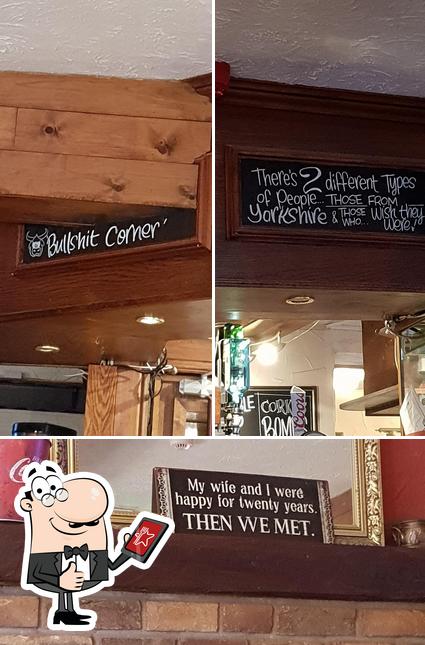 Bullshit Corner'
There's 2 different Types
of People... THOSE FROM
Yorkshire & THOSE WHO... Wish they
Were!
CORK
BOM
Coors
My wife and I were
happy for twenty years.
THEN WE MET.